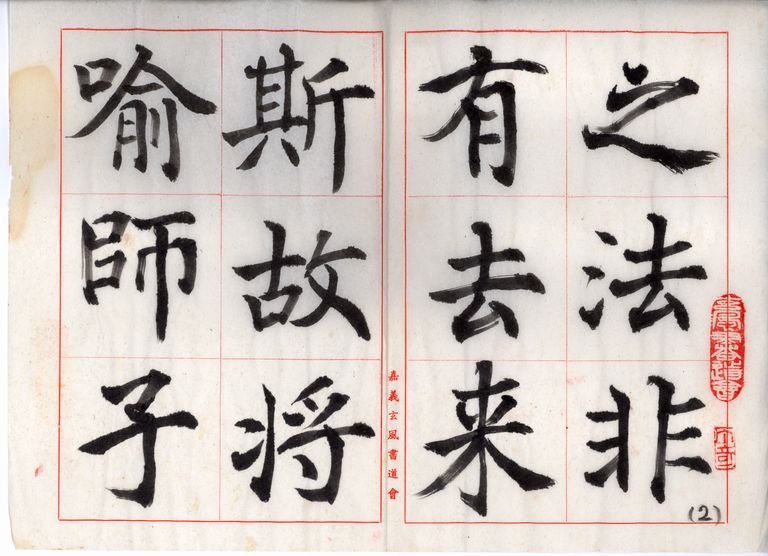 之法非
有去来
斯故将
喻師子
嘉義玄風書道會
(2)